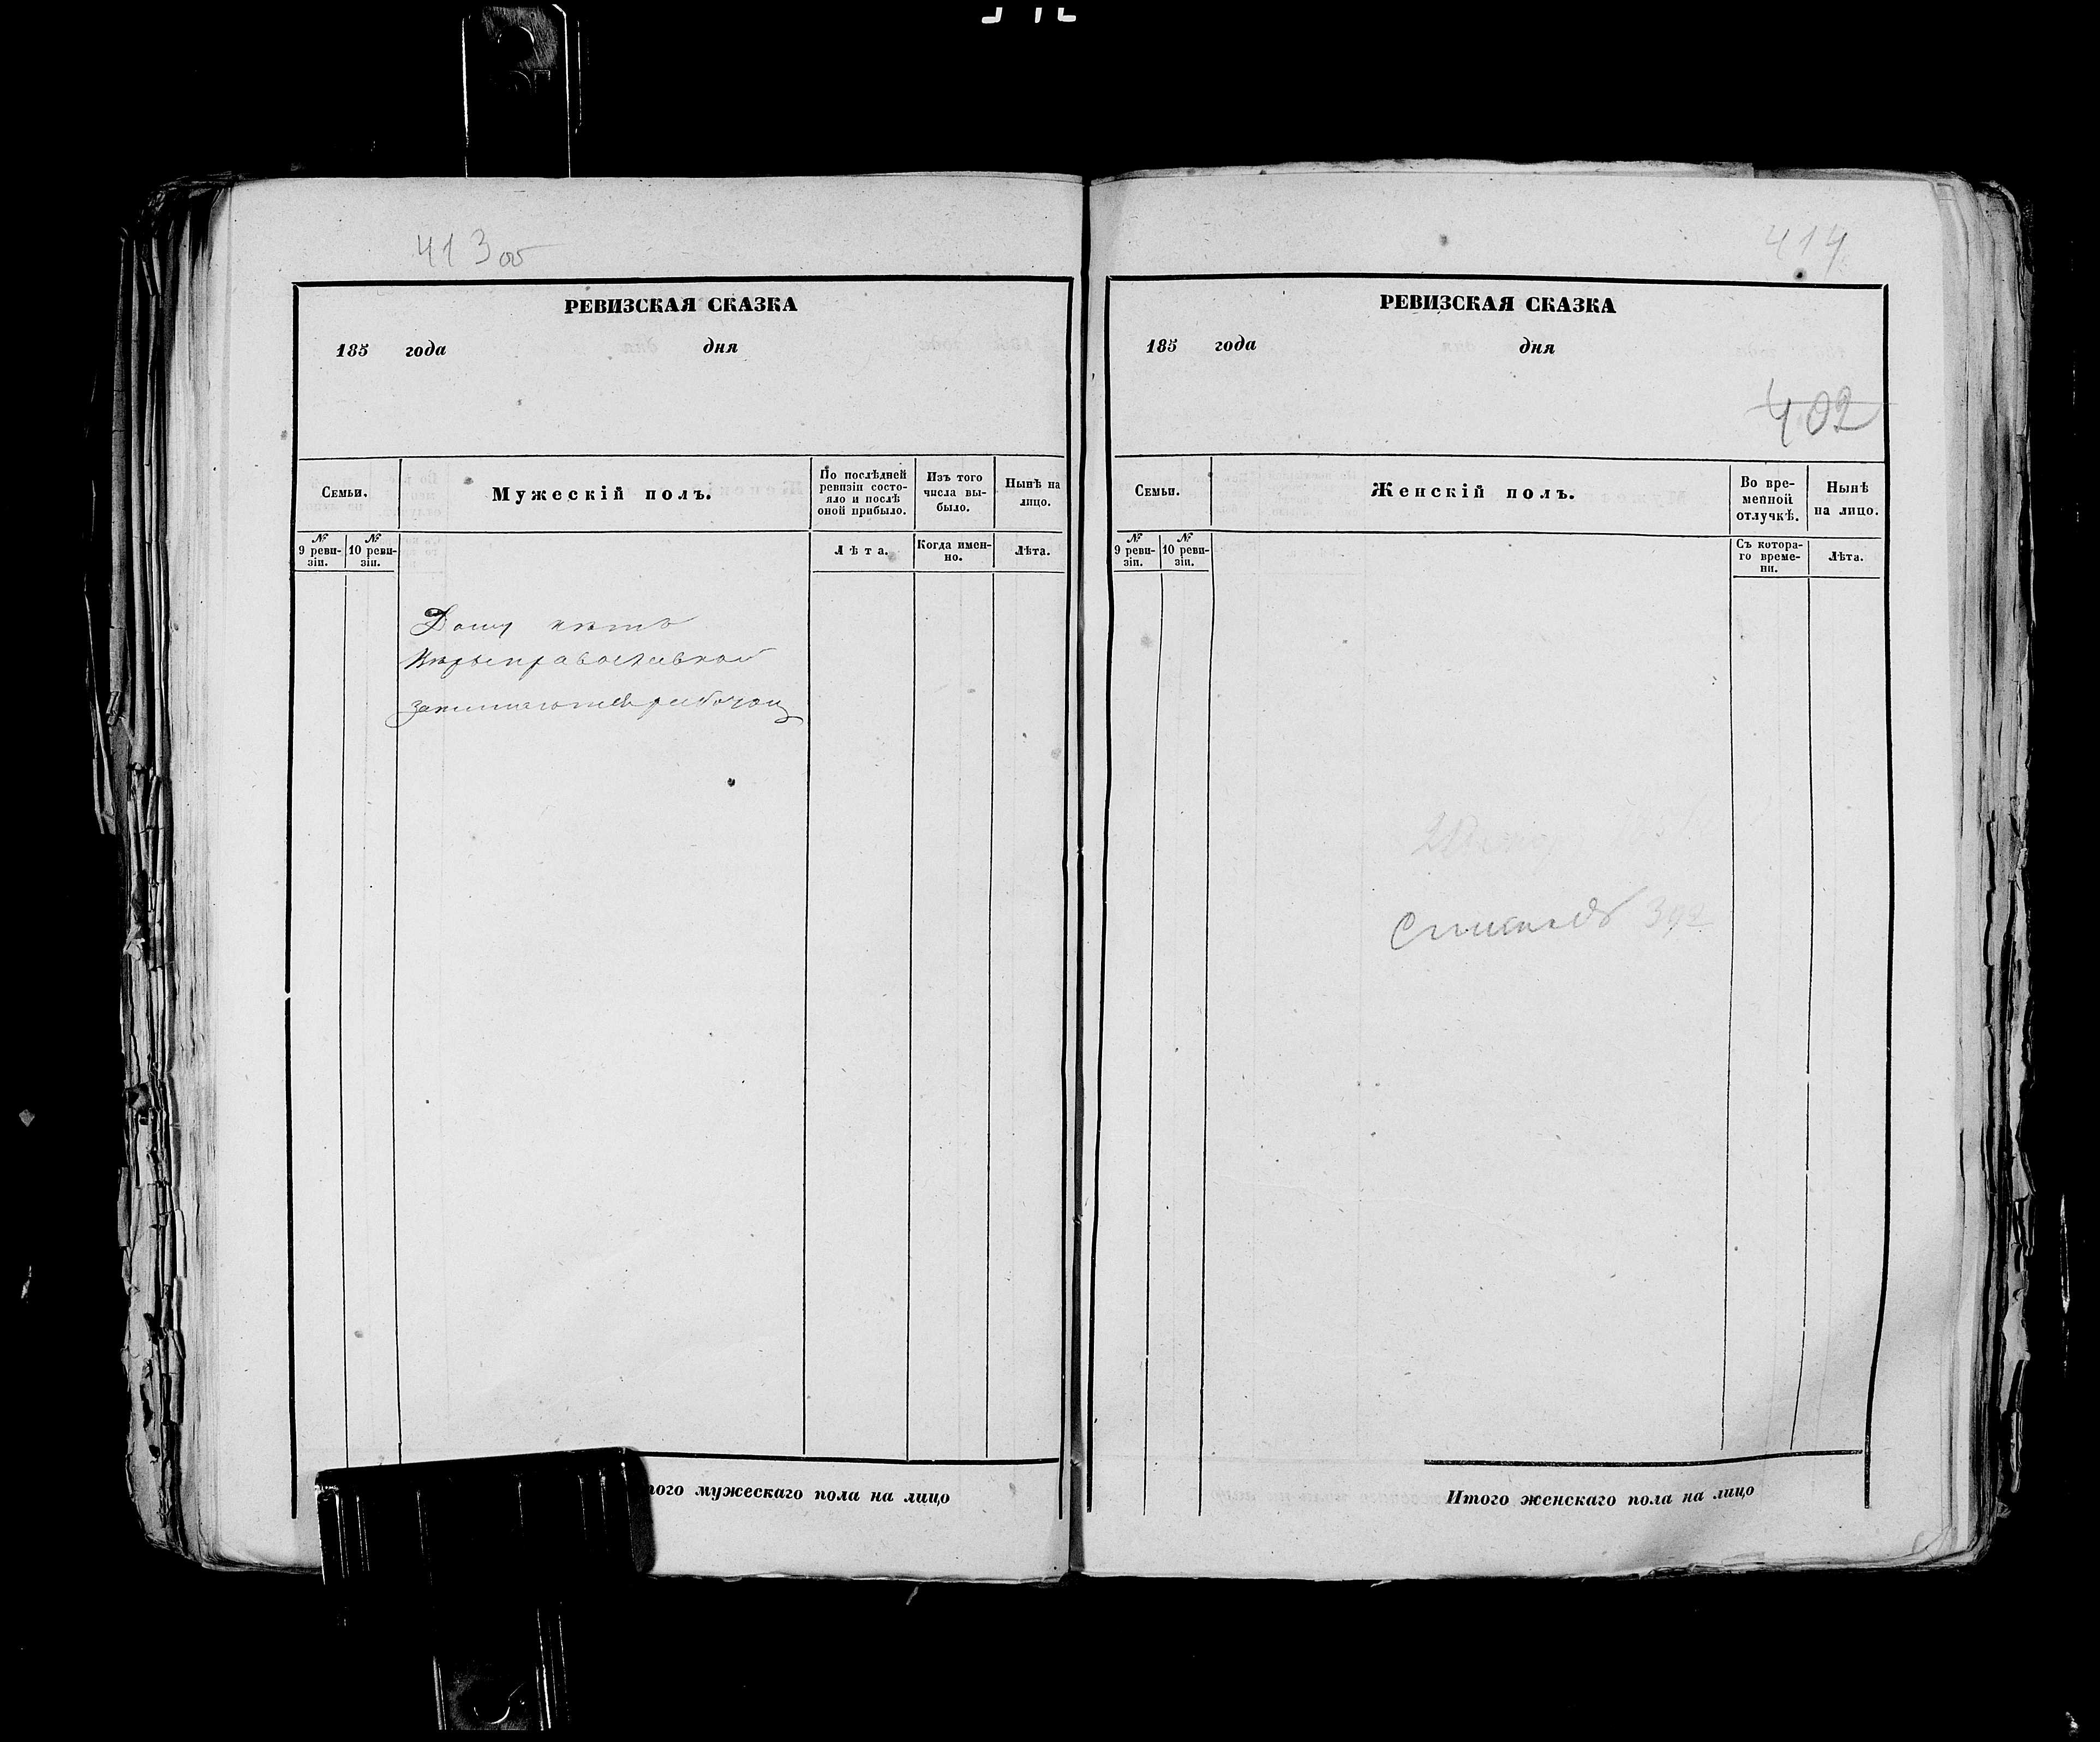 413 об
РЕВИЗСКАЯ СКАЗКА
185 года дня
Семьи.
Мужескій полъ.
По послѣдней
ревизіи состо-
яло и послѣ
оной прибыло.
Изъ того
числа вы-
было.
Нынѣ на
лицо.
№
9 реви-
зіи.
№
10 реви-
зіи.
Лѣта.
Когда имен-
но.
Лѣта.
Дому нѣтъ
Вѣры православной
занимаются работою
того мужескаго пола на лицо
414
РЕВИЗСКАЯ СКАЗКА
185 года дня
402
Семьи.
Женскій полъ.
Во вре-
менной
отлучкѣ.
Нынѣ
на лицо.
№
9 реви-
зіи.
№
10 реви-
зіи.
Съ котора-
го време-
ни.
Лѣта.
392
Итого женскаго пола на лицо